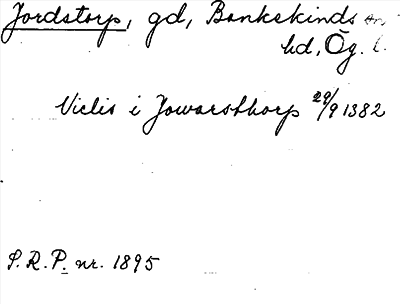 Jordstorp, gd, Bankekinds sn
hd, Ög. l.
Niclis i Jowarsthorp 29/9 1382
S.R.P. nr. 1895